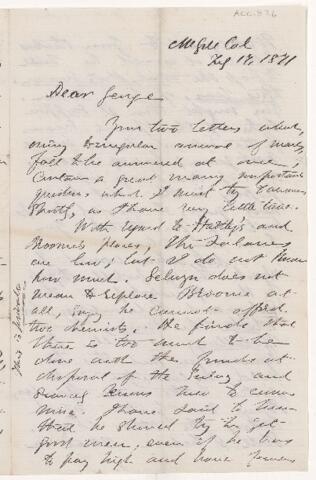 ACC. 826
McGill Col
17, 1871
Dear George
Your two letters which,
owing to irregular arrival of mails,
fall to be answered at once,
contain a great many important
questions which I must try to answer
shortly, as I have very little time.
With regard to Hartley's and
Broome's places, the salaries
are low; but I do not know
how much. Selwyn does not
mean to replace Broome at
all, says he cannot afford
two chemists. He finds that
there is too much to be
done with the funds at
disposal of the Survey and
knows how to
mise. I have said to him
that he should try to get
good men, even if he has
to pay high and have fewer
This is private